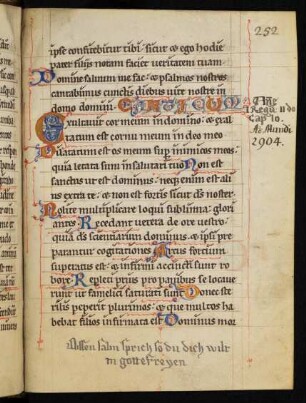 252
ipse confitebitur tibi sicut et ego hodie
pater filiis notam faciet ueritatem tuam
Domine saluum me fac et psalmos nostros
cantabimus cunctis diebus uite nostre in
domo domini. CANTICUM
Exultauit cor meum in domino et exal
tatum est cornu meum in deo meo
Dilatatum est os meum super inimicos meos
quia letata sum in salutari tuo Non est
sanctus ut est dominus neque enim est ali
us extra te et non est fortis sicut deus noster
Nolite multiplicare loqui sublimia glori
antes Recedant uetera de ore uestro
quia deus scientiarum dominus et ipsi pre
parantur cogitationes Arcus fortium
superatus est et infirmi accincti sunt ro
bore Repleti prius pro panibus se locaue
runt et famelici saturati sunt Donec ste
rilis peperit plurimos et que multos ha
bebat filios infirmata est Dominus mor
Cap 10.
A. Mundi
2904.
Dissen salm sprich so du dich wilt
in gotte freyen